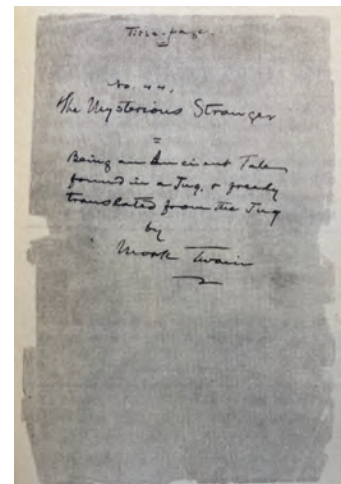 Title-page.
No. 44,
The Mysterious Stranger
Being an Ancient Tale
found in a Jug, & freely
translated from the Jug
by
Mark Twain